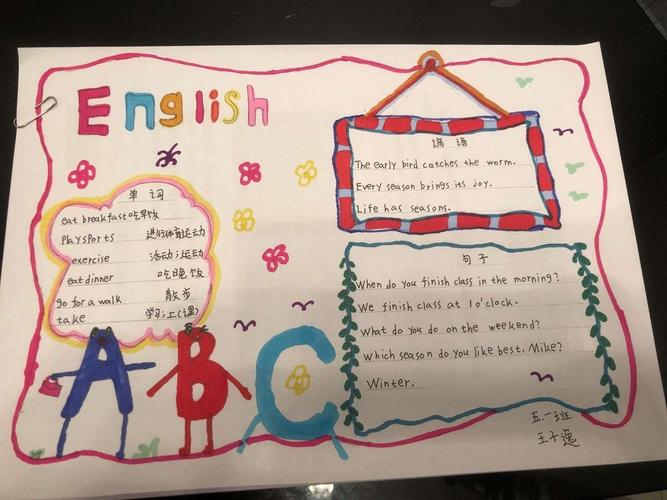 English
单词
eat breakfast 吃早饭
Play sports 进行体育运动
exercise 活动;运动
eat dinner 吃晚饭
go for a walk 散步
take 学习;上(课)
A B C
谚语
The early bird catches the worm.
Every season brings its joy.
Life has seasons.
句子
When do you finish class in the morning?
We finish class at 1 o'clock.
What do you do on the weekend?
Which season do you like best, Mike?
Winter.
五.一班
王子逸